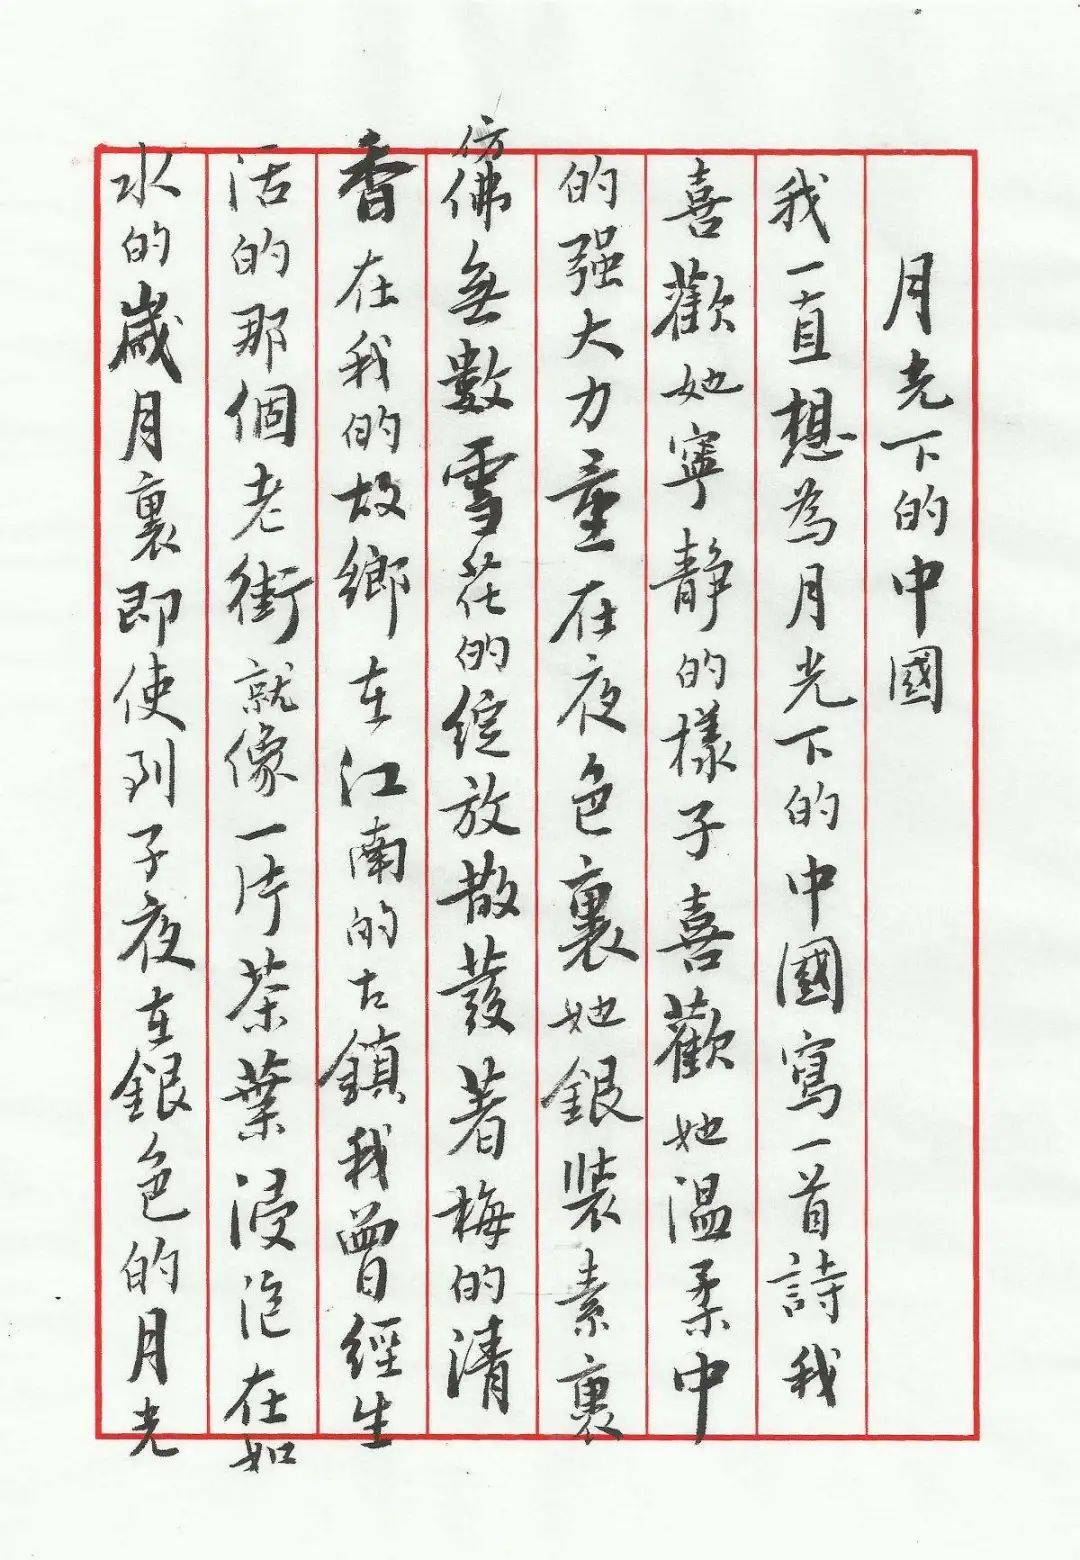 月光下的中國
我一直想為月光下的中國寫一首詩我
喜歡她寧靜的樣子喜歡她溫柔中
的强大力量在夜色裏她銀裝素裹
仿佛無數雪花的綻放散發著梅的清
香在我的故鄉在江南的古鎮我曾經生
活的那個老街就像一片茶葉浸泡在如
水的歲月裏即使到子夜在銀色的月光